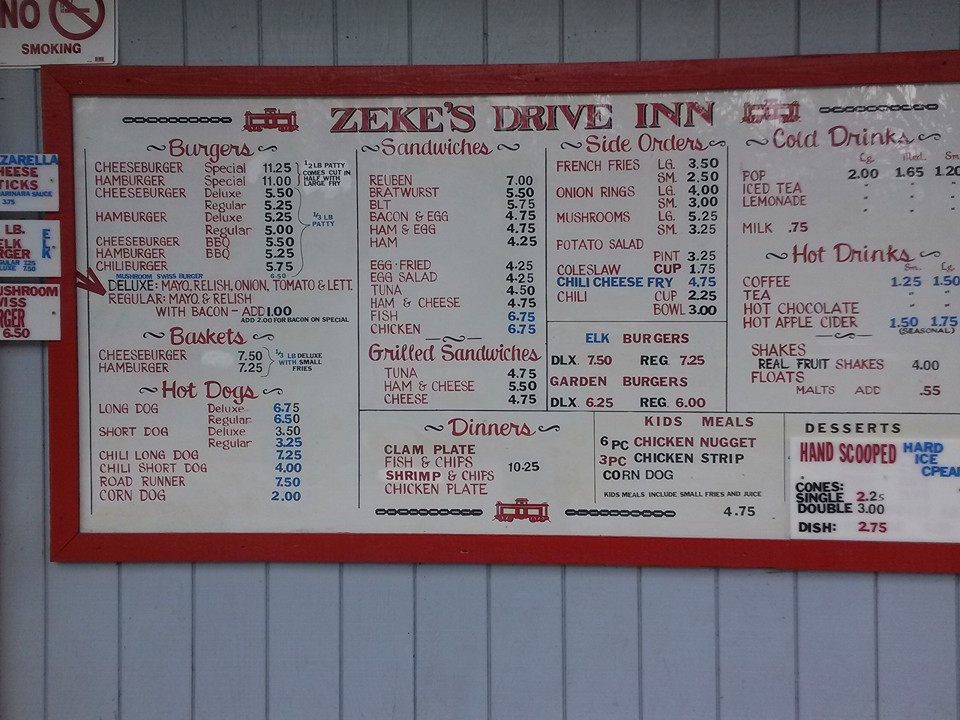 NO
SMOKING
ZARELLA
HEESE
TICKS
ARINARA SAUCE
3.75
LB.
ELK
RGER
ELK
GULAR 7.25
LUXE 7.50
USHROOM
WISS
RGER
6.50
ZEKE'S DRIVE INN
~Burgers~
CHEESEBURGER Special 11.25
HAMBURGER Special 11.00
1/2 LB PATTY
COMES CUT IN
HALF WITH
LARGE FRY
CHEESEBURGER Deluxe 5.50
Regular 5.25
HAMBURGER Deluxe 5.25
Regular 5.00
CHEESEBURGER BBQ 5.50
HAMBURGER BBQ 5.25
CHILIBURGER 5.75
1/3 LB
PATTY
MUSHROOM SWISS BURGER 6.50
DELUXE: MAYO, RELISH, ONION, TOMATO & LETT.
REGULAR: MAYO & RELISH
WITH BACON - ADD 1.00
ADD 2.00 FOR BACON ON SPECIAL
~Baskets~
CHEESEBURGER 7.50
HAMBURGER 7.25
1/3 LB DELUXE
WITH SMALL
FRIES
~Hot Dogs~
LONG DOG Deluxe 6.75
Regular 6.50
SHORT DOG Deluxe 3.50
Regular 3.25
CHILI LONG DOG 7.25
CHILI SHORT DOG 4.00
ROAD RUNNER 7.50
CORN DOG 2.00
~Sandwiches~
REUBEN 7.00
BRATWURST 5.50
BLT 5.75
BACON & EGG 4.75
HAM & EGG 4.75
HAM 4.25
EGG-FRIED 4.25
EGG SALAD 4.25
TUNA 4.50
HAM & CHEESE 4.75
FISH 6.75
CHICKEN 6.75
Grilled Sandwiches
TUNA 4.75
HAM & CHEESE 5.50
CHEESE 4.75
~Side Orders~
FRENCH FRIES LG. 3.50
SM. 2.50
ONION RINGS LG. 4.00
SM. 3.00
MUSHROOMS LG. 5.25
SM. 3.25
POTATO SALAD
PINT 3.25
COLESLAW CUP 1.75
CHILI CHEESE FRY 4.75
CHILI CUP 2.25
BOWL 3.00
ELK BURGERS
DLX. 7.50 REG. 7.25
GARDEN BURGERS
DLX. 6.25 REG. 6.00
~Cold Drinks~
Lg. Med. Sm
POP 2.00 1.65 1.20
ICED TEA " " "
LEMONADE " " "
MILK .75
~Hot Drinks~
Sm. Lg.
COFFEE 1.25 1.50
TEA " "
HOT CHOCOLATE " "
HOT APPLE CIDER 1.50 1.75
(SEASONAL)
SHAKES
REAL FRUIT SHAKES 4.00
FLOATS
MALTS ADD .55
~Dinners~
CLAM PLATE
FISH & CHIPS
SHRIMP & CHIPS
CHICKEN PLATE
10.25
KIDS MEALS
6 PC CHICKEN NUGGET
3PC CHICKEN STRIP
CORN DOG
KIDS MEALS INCLUDE SMALL FRIES AND JUICE
4.75
DESSERTS
HAND SCOOPED HARD
ICE
CREA
CONES:
SINGLE 2.25
DOUBLE 3.00
DISH: 2.75